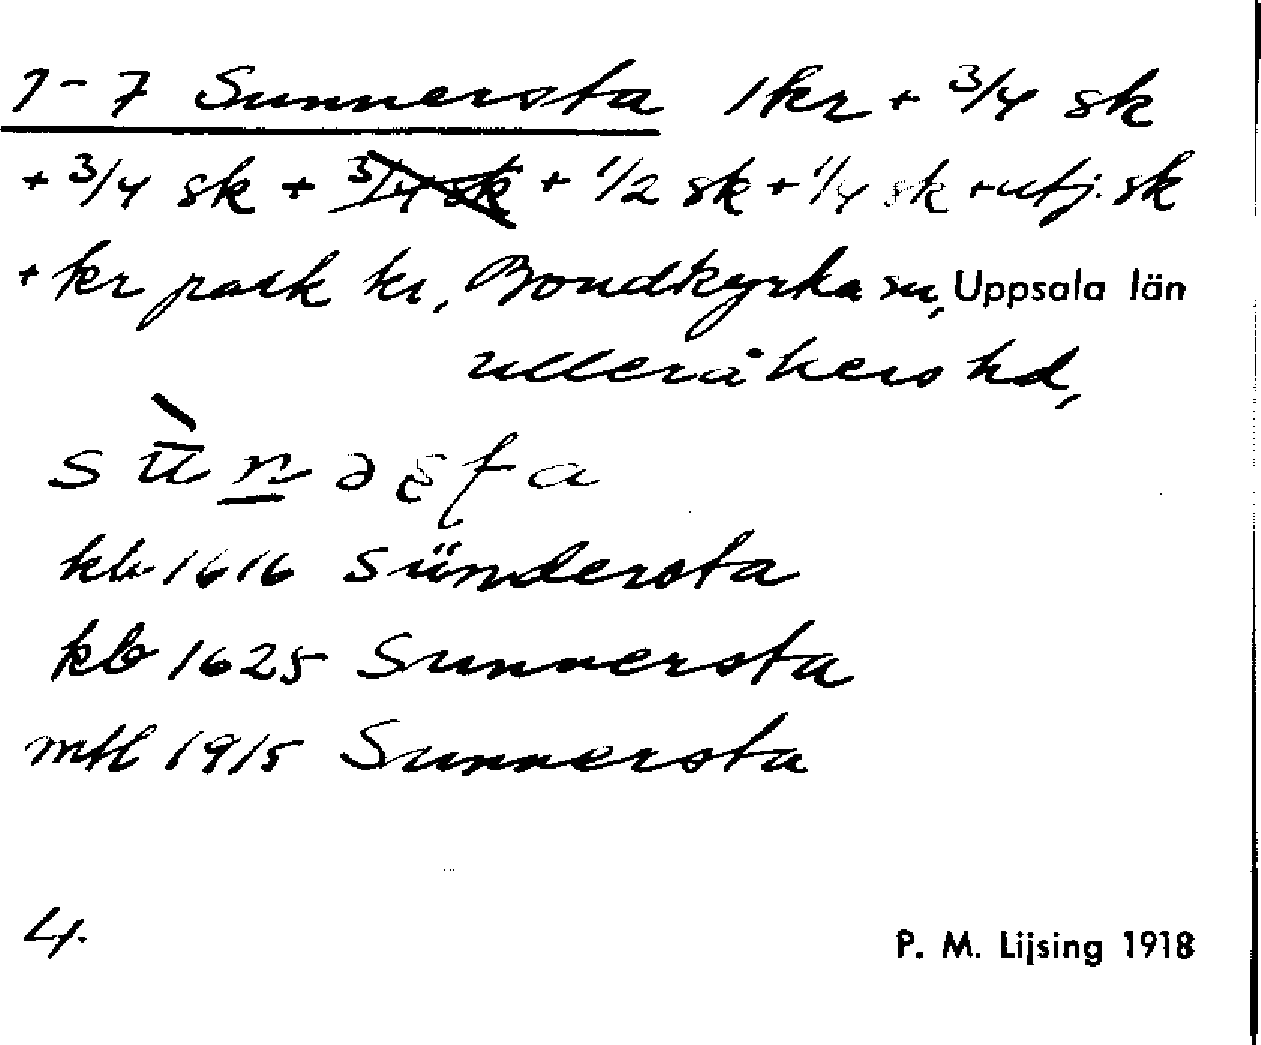 1-7 Sunnersta 1 kr + 3/4 sk
+ 3/4 sk + 3/4 sk + 1/2 sk + 1/4 sk + utj. sk
+ kr park kr, Bondkyrka sn, Uppsala län
Ulleråkers hd,
kb 1616 Sündersta
kb 1625 Sunnersta
mtl 1915 Sunnersta
4.
P. M. Lijsing 1918